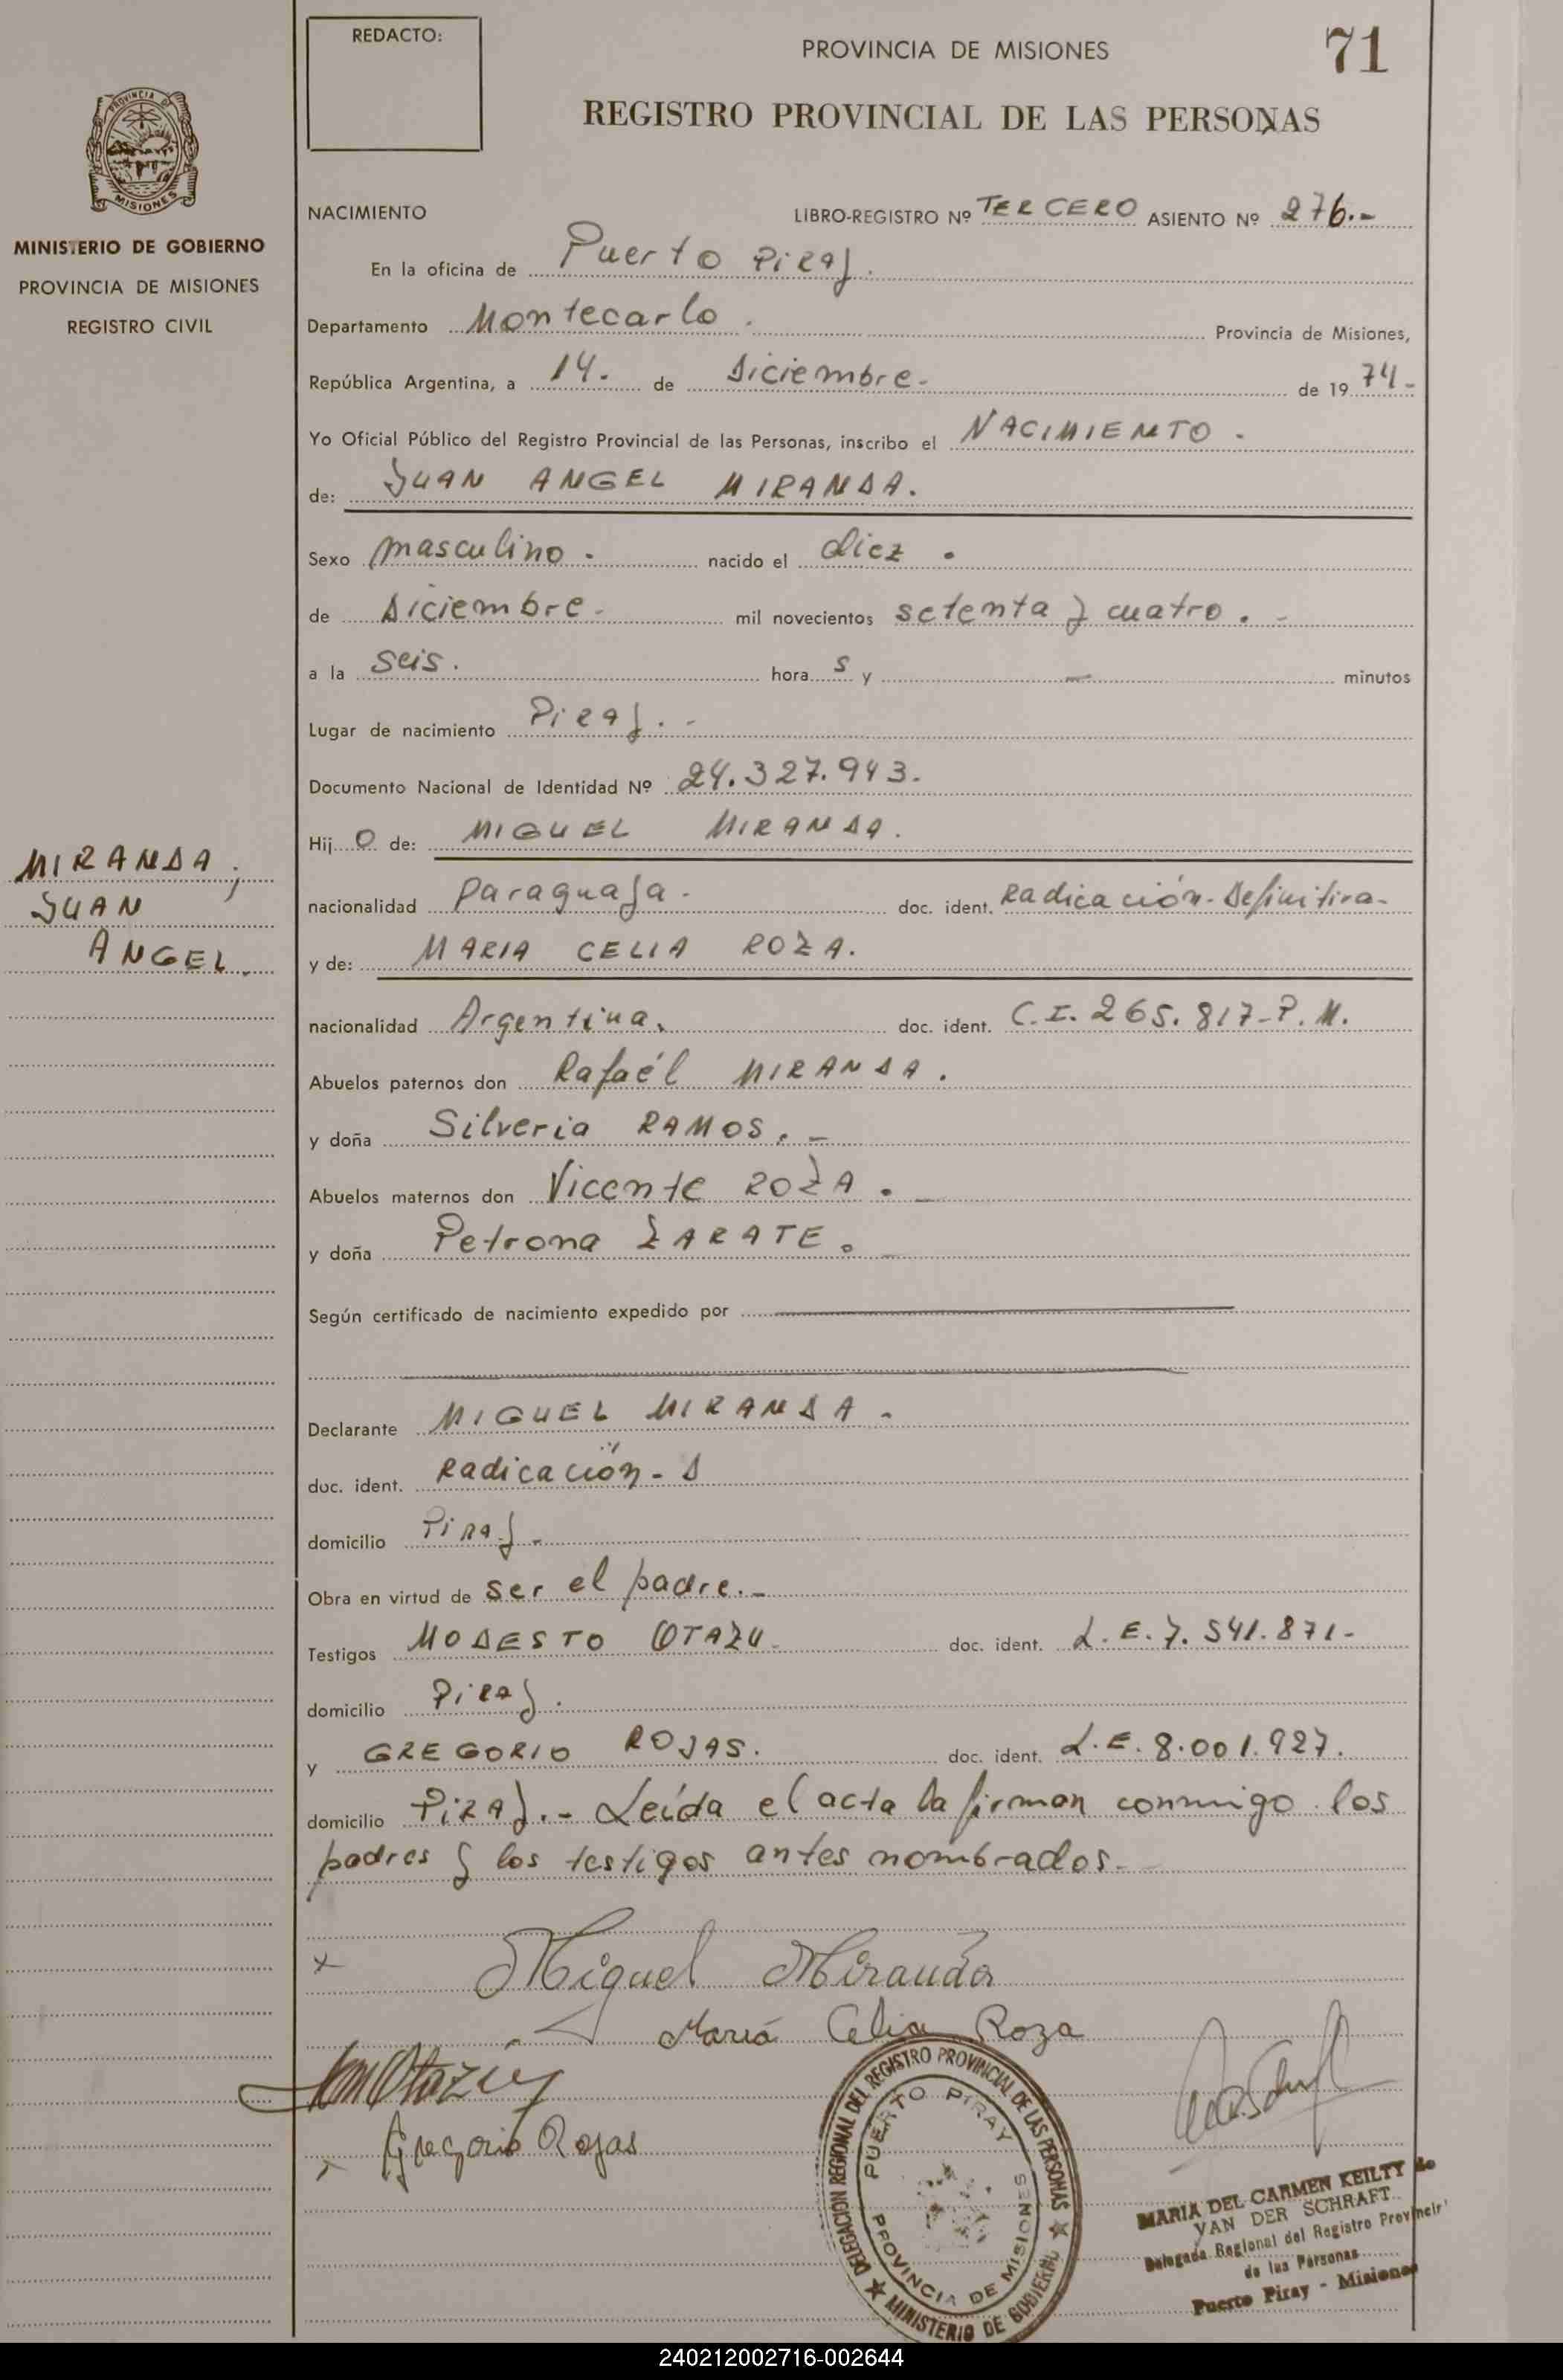 REDACTO:
PROVINCIA DE MISIONES
71
REGISTRO PROVINCIAL DE LAS PERSONAS
PROVINCIA D
MISIONES
MINISTERIO DE GOBIERNO
PROVINCIA DE MISIONES
REGISTRO CIVIL
NACIMIENTO
LIBRO-REGISTRO Nº TERCERO ASIENTO Nº 276.-
En la oficina de Puerto Piray.
Departamento Montecarlo. Provincia de Misiones,
República Argentina, a 14. de Diciembre.- de 19 74-
Yo Oficial Público del Registro Provincial de las Personas, inscribo el NACIMIENTO.
de: JUAN ANGEL MIRANDA.
Sexo masculino. nacido el diez.
de Diciembre.- mil novecientos setenta y cuatro.-
a la seis. hora s y - minutos
Lugar de nacimiento Piray.-
Documento Nacional de Identidad Nº 24.327.943.
Hij o de: MIGUEL MIRANDA.
MIRANDA,
JUAN
ANGEL.
nacionalidad paraguaya- doc. ident. Radicación-Definitiva-
y de: MARIA CELIA ROZA.
nacionalidad Argentina. doc. ident. C.I. 265.817-P.M.
Abuelos paternos don Rafaél MIRANDA.
y doña Silveria RAMOS.-
Abuelos maternos don Vicente ROZA.-
y doña Petrona ZARATE.
Según certificado de nacimiento expedido por
Declarante MIGUEL MIRANDA-
doc. ident. Radicación-D
domicilio Piray-
Obra en virtud de ser el padre.-
Testigos MODESTO OTAZU- doc. ident. L.E.7.541.871-
domicilio Piray.
y GREGORIO ROJAS. doc. ident. L.E.8.001.927.
domicilio Piray.- Leída el acta la firman conmigo los
padres y los testigos antes nombrados.-
x Miguel Miranda
Maria Celia Roza
Otazu
Gregorio Rojas
DELEGACION REGIONAL DEL REGISTRO PROVINCIAL DE LAS PERSONAS
MINISTERIO DE GOBIERNO
PUERTO PIRAY
PROVINCIA DE MISIONES
MARIA DEL CARMEN KEILTY de
VAN DER SCHRAFT
Delegada Regional del Registro Provincial
de las Personas
Puerto Piray - Misiones
240212002716-002644